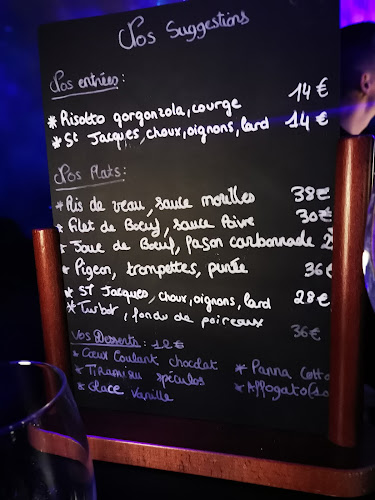 Nos Suggestions
Nos entrées:
* Risotto gorgonzola, courge 14€
* St Jacques, choux, oignons, lard 14€
Nos Plats:
* Ris de veau, sauce morilles 38€
* Filet de Boeuf, sauce Poivre 30€
* Joue de Boeuf, façon carbonnade
* Pigeon, trompettes, purée 36€
* ST Jacques, choux, oignons, lard 28€
* Turbot, fondu de poireaux 36€
Vos Desserts: 12€
* Cœur Coulant chocolat
* Tiramisu spéculos
* Glace Vanille
* Panna Cotta
* Affogato